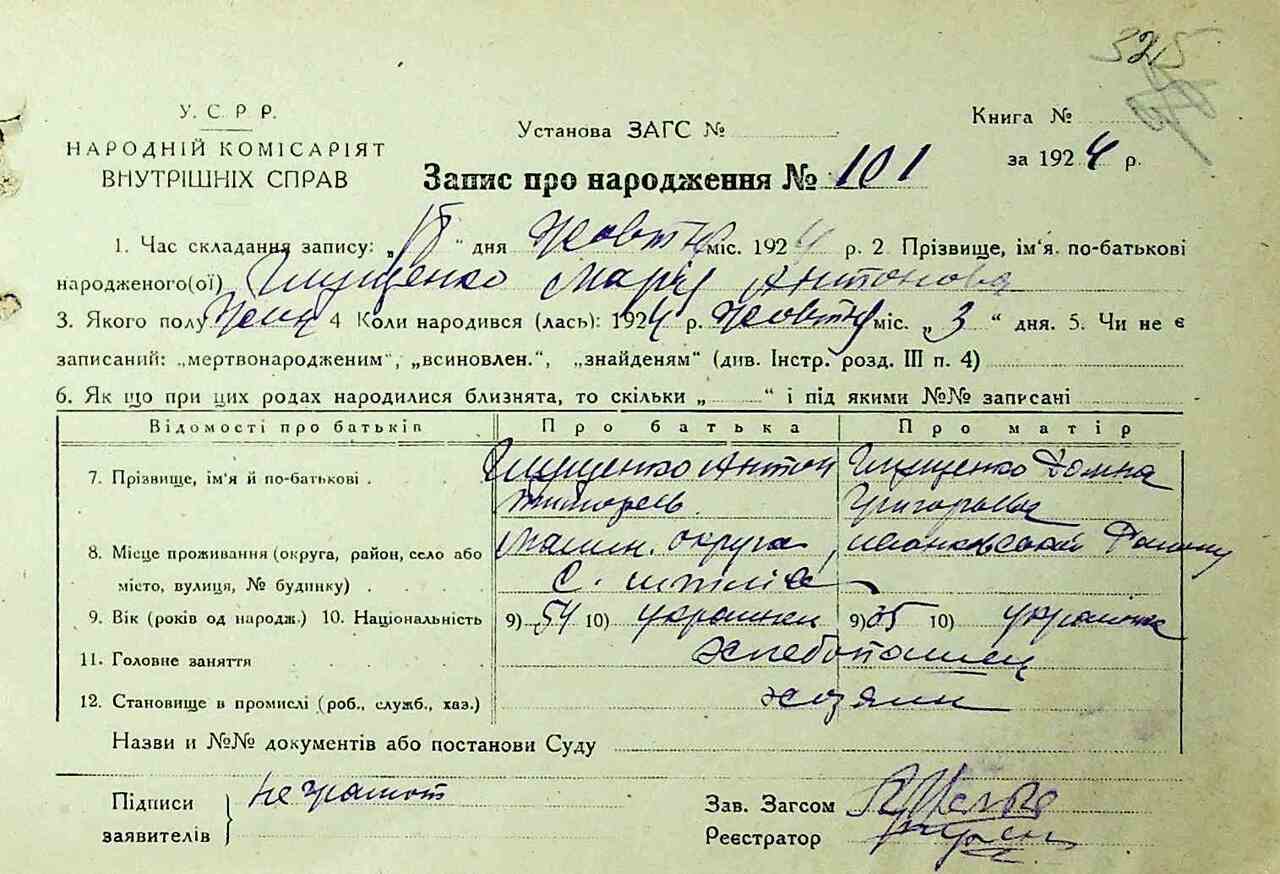 325
У. С. Р Р.
НАРОДНІЙ КОМІСАРІЯТ
ВНУТРІШНІХ СПРАВ
Установа ЗАГС №
Книга №
за 1924 р.
Запис про народження № 101
1. Час складання запису: „ “ дня Жовтня міс. 1924 р. 2 Прізвище, ім'я. по-батькові
народженого(ої) Марія Антонова
3. Якого полу Жен 4 Коли народився (лась): 1924 р. Жовтня міс. „ 3 “ дня. 5. Чи не є
записаний: „мертвонародженим“, „всиновлен.“, „знайденям“ (див. Інстр. розд. III п. 4)
6. Як що при цих родах народилися близнята, то скільки „ “ і під якими №№ записані
Відомості про батьків Про батька Про матір
7. Прізвище, ім'я й по-батькові . Антон Домна
Григоровна
8. Місце проживання (округа, район, село або Малин. округа,
місто, вулиця, № будинку) . . . . с.
9. Вік (років од народж.) 10. Національність 9) 54 10) украинец 9) 35 10) украинка
11. Головне заняття Хлебопашец
12. Становище в промислі (роб., служб., хаз.) хозяин
Назви и №№ документів або постанови Суду
Підписи
заявителів } неграмот
Зав. Загсом
Реєстратор